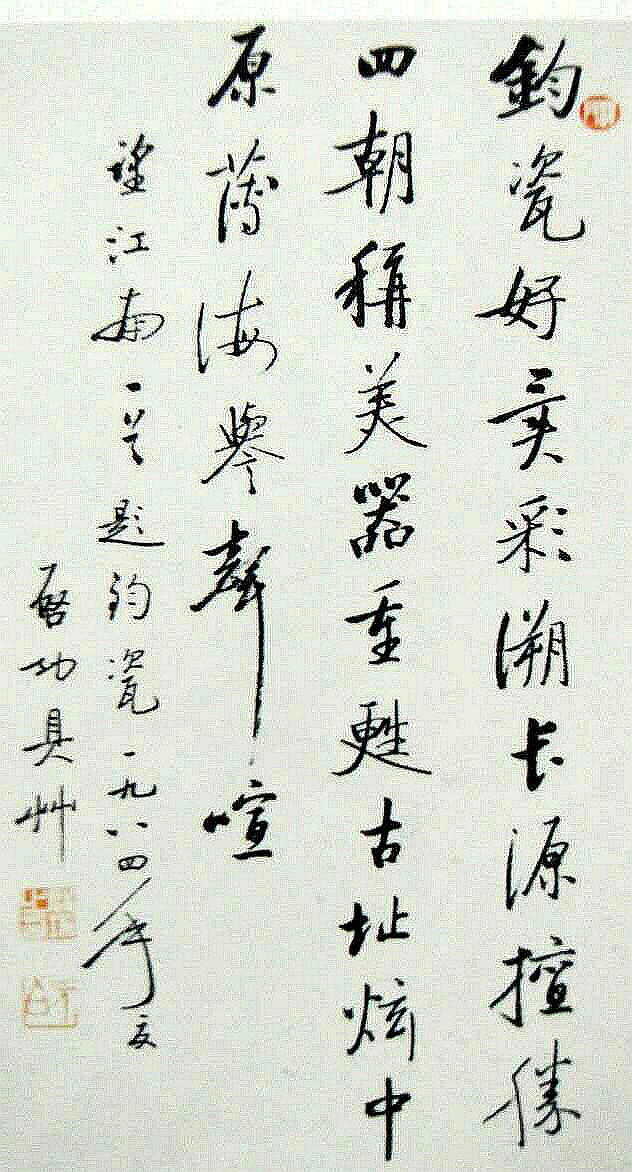 鈞瓷好異彩溯长源擅勝
四朝稱美器重甦古址炫中
原薄海譽聲喧
望江南一首題鈞瓷一九八四年夏
啓功具艸